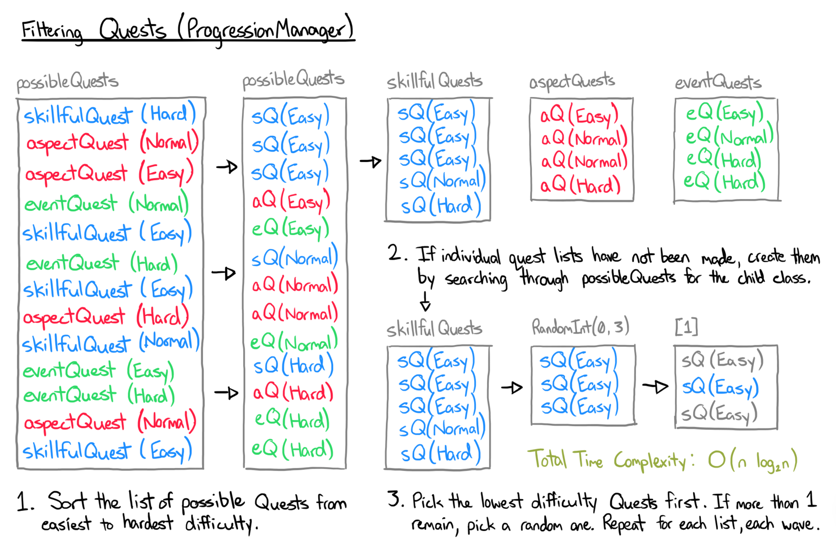 Filtering Quests (ProgressionManager)
possibleQuests
skillfulQuest (Hard)
aspectQuest (Normal)
aspectQuest (Easy)
eventQuest (Normal)
skillfulQuest (Easy)
eventQuest (Hard)
skillfulQuest (Easy)
aspectQuest (Hard)
skillfulQuest (Normal)
eventQuest (Easy)
eventQuest (Hard)
aspectQuest (Normal)
skillfulQuest (Easy)
possibleQuests
sQ(Easy)
sQ(Easy)
sQ(Easy)
aQ(Easy)
eQ(Easy)
sQ(Normal)
aQ(Normal)
aQ(Normal)
eQ(Normal)
sQ(Hard)
aQ(Hard)
eQ(Hard)
eQ(Hard)
1. Sort the list of possible Quests from
easiest to hardest difficulty.
skillfulQuests
sQ(Easy)
sQ(Easy)
sQ(Easy)
sQ(Normal)
sQ(Hard)
aspectQuests
aQ(Easy)
aQ(Normal)
aQ(Normal)
aQ(Hard)
eventQuests
eQ(Easy)
eQ(Normal)
eQ(Hard)
eQ(Hard)
2. If individual quest lists have not been made, create them
by searching through possibleQuests for the child class.
skillfulQuests
sQ(Easy)
sQ(Easy)
sQ(Easy)
sQ(Normal)
sQ(Hard)
RandomInt(0,3)
sQ(Easy)
sQ(Easy)
sQ(Easy)
[1]
sQ(Easy)
sQ(Easy)
sQ(Easy)
Total Time Complexity: O(n log₂n)
3. Pick the lowest difficulty Quests first. If more than 1
remain, pick a random one. Repeat for each list, each wave.